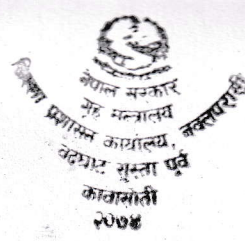 नेपाल सरकार
गृह मन्त्रालय
जिल्ला प्रशासन कार्यालय, नवलपरासी
बर्दघाट सुस्ता पूर्व
कावासोती
२०७४